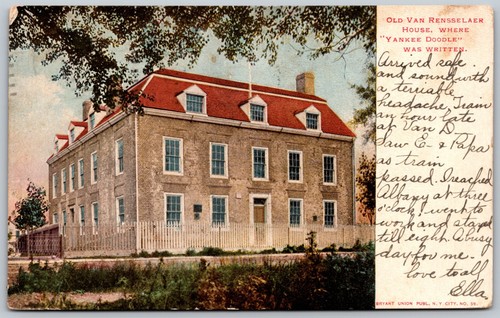 OLD VAN RENSSELAER
HOUSE, WHERE
"YANKEE DOODLE"
WAS WRITTEN.
Arrived safe
and sound with
a terriable
headache, Train
an hour late
at Van D
Saw E - & Papa
as train
passed. I reached
Albany at three
o'clock, I went to
work and stayed
till eight. A busy
day for me.
love to all
Ella
BRYANT UNION PUBL., N. Y. CITY. NO.